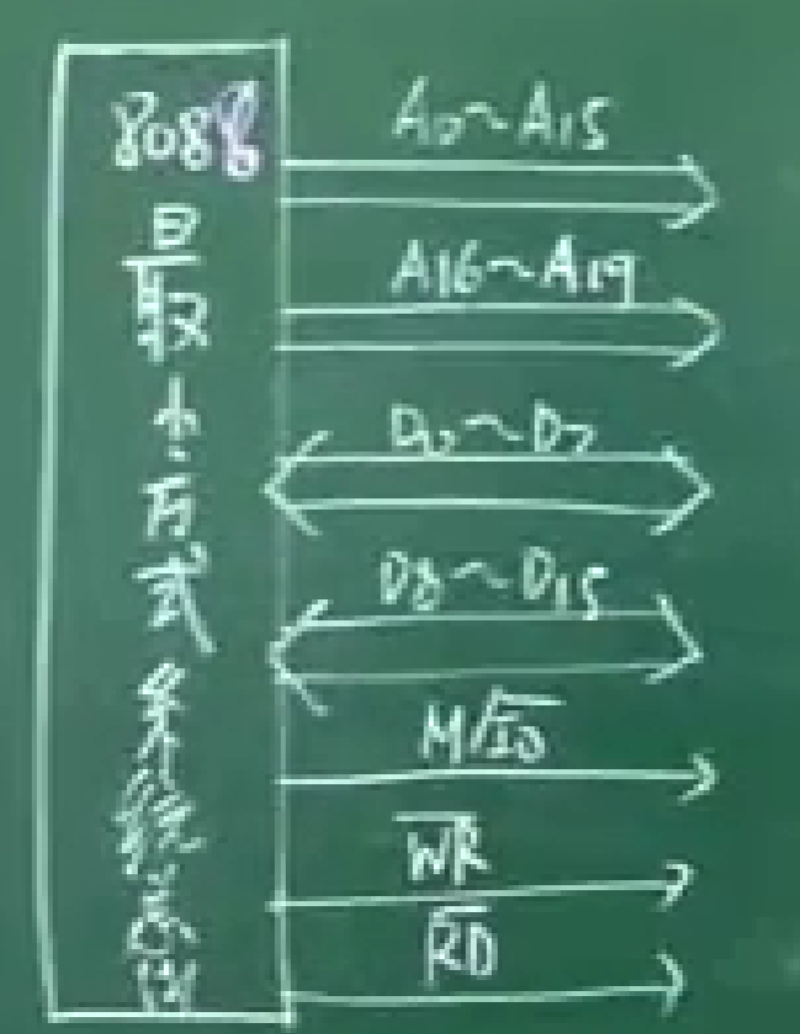 8088
最
小
方
式
系
统
总
线
A0~A15
A16~A19
D0~D7
D8~D15
M/I̅O̅
W̅R̅
R̅D̅